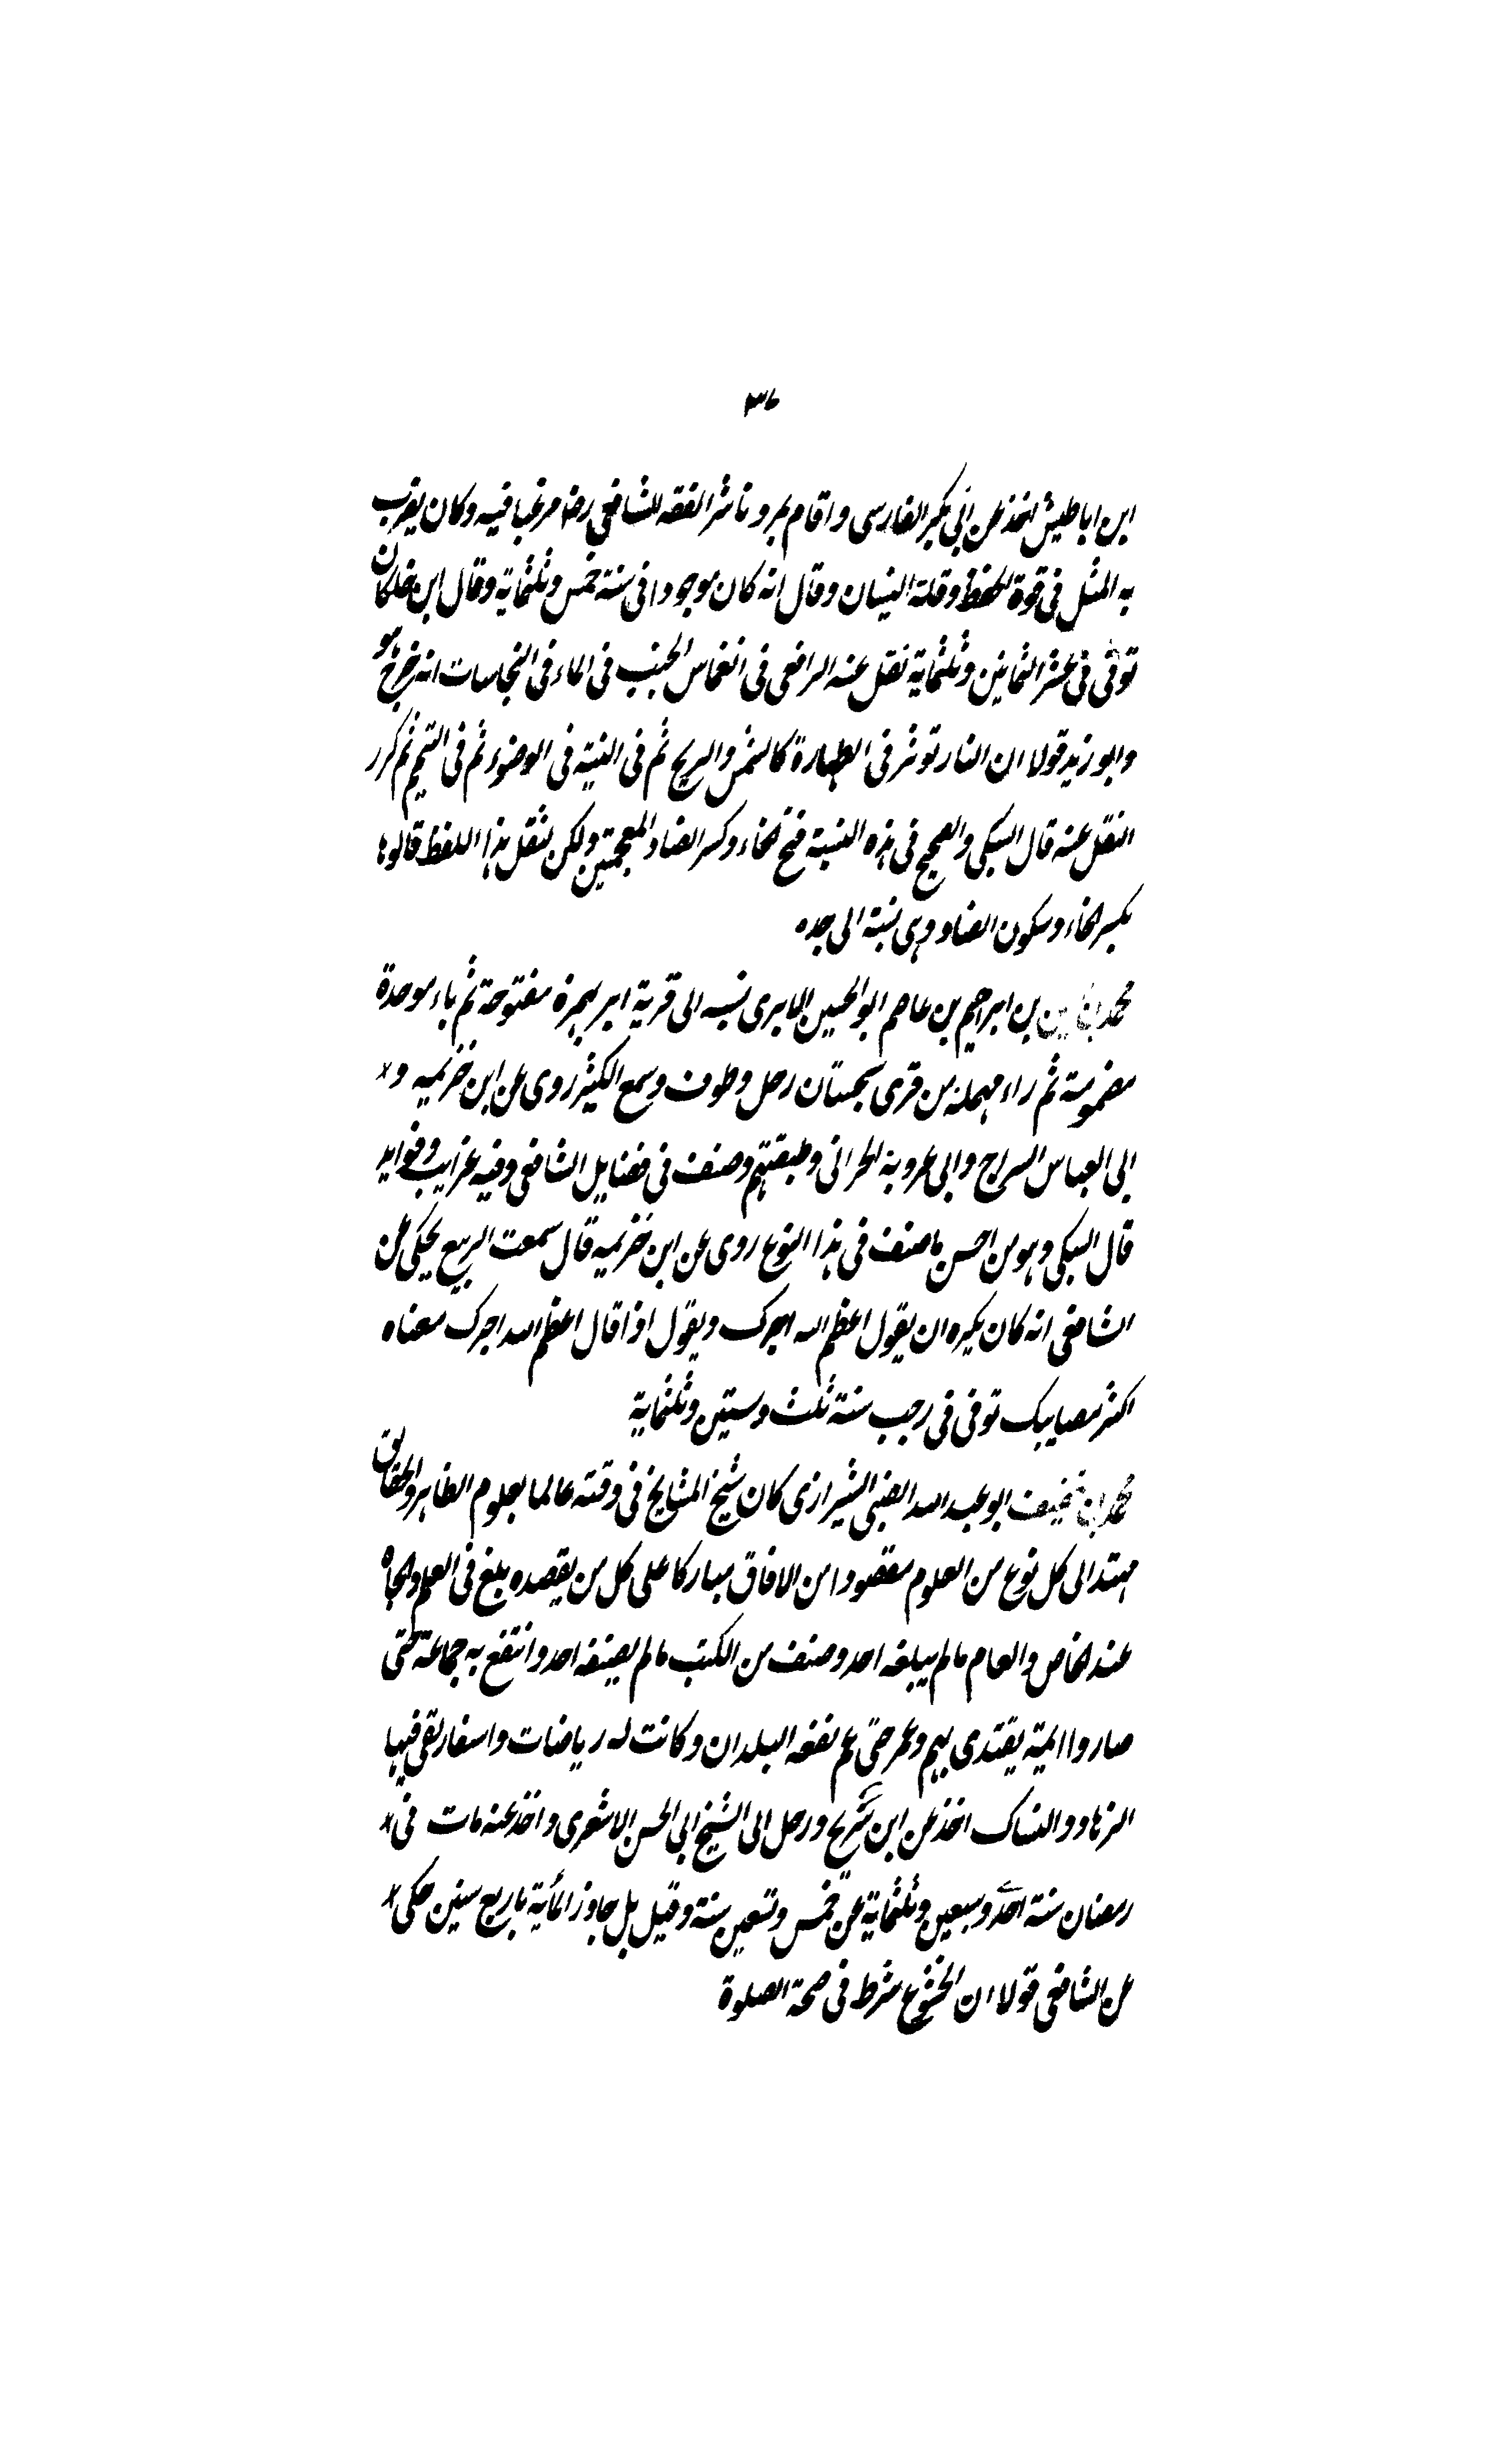 ٣٧
ابن اباطيش اخذ عن ابي بكر الفارسى واقام بمرو ناشر الفقه للشافعى رضا مرغبا فيه وكان يضرب
به المثل فى قوة الحفظ وقلة النسيان وقال انه كان موجودا فى سنة خمس وثلثماية وقال ابن خلكان
توفى فى عشر الثمانين وثلثماية نقل عنه الرافعى فى انغماس الجنب فى الماء فى النجاسات انه خرج هو
وابو زيد قولا ان النار توثر فى الطهارة كالشمس والريح ثم فى النية فى الوضوء ثم فى التيمم ثم كرر
النقل عنه قال السبكى والصحيح فى هذه النسبة فتح الخاء وكسر الضاد المعجمتين ولكن لثقل هذا اللفظ قالوها
بكسر الخاء وسكون الضاد وهى نسبة الى جده
محمد بن بن ابراهيم بن عاصم ابو الحسين الابرى نسبه الى قرية ابر بهمزة مفتوحة ثم باء موحدة
مضمومة ثم راء مهملة من قرى سجستان رحل وطوف وسمع الكثير روى عن ابن خزيمه و
ابى العباس السراج وابى عروبة الحرانى وطبقتهم وصنف فى فضايل الشافعى وفيه غرايب وفوايد
قال السبكى وهو من احسن ما صنف فى هذا النوع روى عن ابن خزيمه قال سمعت الربيع يحكى عن
الشافعى انه كان يكره ان يقول اعظم الله اجرك ويقول اذا قال اعظم الله اجرك معناه
اكثر مصايبك توفى فى رجب سنة ثلث وستين وثلثماية
محمد بن خفيف ابو عبد الله الضبى الشيرازى كان شيخ المشايخ فى وقته عالما بعلوم الظاهر والحقايق
مهتد الى كل نوع من العلوم مقصودا من الافاق مباركا على كل من يقصده بلغ فى العلم والجاه
عند الخاص والعام ما لم يبلغه احد وصنف من الكتب ما لم يصنفه احد وانتفع به جماعة حتى
صاروا ايمة يقتدى بهم وعمر حتى عم نفعه البلدان وكانت له رياضات واسفار لقى فيها
الزهاد والنساك اخذ عن ابن شريح ورحل الى الشيخ ابى الحسن الاشعرى واخذ عنه مات فى
رمضان سنة احد وسبعين وثلثماية عن خمس وتسعين سنة وقيل بل جاوز المأية باربع سنين حكى
عن الشافعى قولا ان الخشوع شرط فى صحة الصلوة